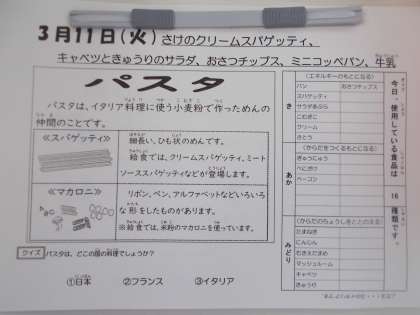 3月11日(火) さけのクリームスパゲッティ、
キャベツときゅうりのサラダ、おさつチップス、ミニコッペパン、牛乳
パスタ
パスタは、イタリア料理に使う小麦粉で作っためんの
仲間のことです。
≪スパゲッティ≫
細長い、ひも状のめんです。
給食では、クリームスパゲッティ、ミート
ソーススパゲッティなどが登場します。
≪マカロニ≫
リボン、ペン、アルファベットなどいろいろ
な形をしたものがあります。
※給食では、米粉のマカロニを使っています。
クイズ パスタは、どこの国の料理でしょうか?
①日本 ②フランス ③イタリア
き
(エネルギーのもとになる)
パン おさつチップス
スパゲッティ
サラダあぶら
こむぎこ
クリーム
さとう
あか
(からだをつくるもとになる)
ぎゅうにゅう
べにざけ
ベーコン
みどり
(からだのちょうしをととのえる)
たまねぎ
にんじん
マッシュルーム
キャベツ
きゅうり
今日、使用している食品は 16 種類です。